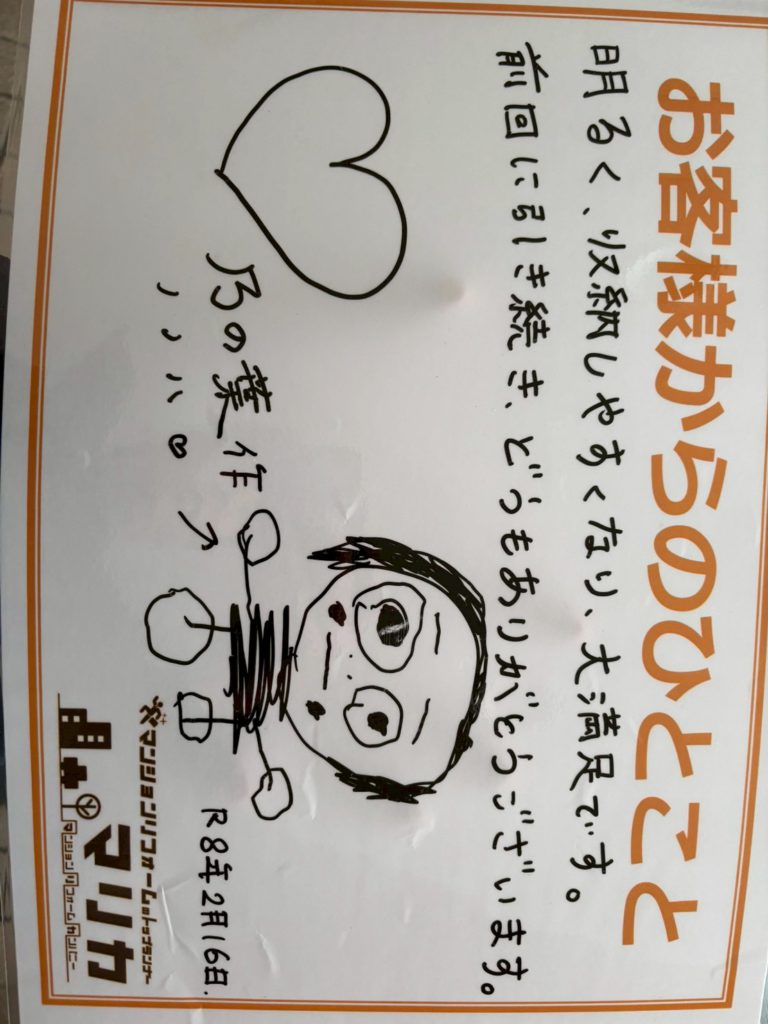 お客様からのひとこと
明るく、収納しやすくなり、大満足です。
前回に引き続き、どうもありがとうございます。
乃の葉作
R8年2月16日.
マンションリフォームのトップランナー
マリカ
マンションリフォームカンパニー